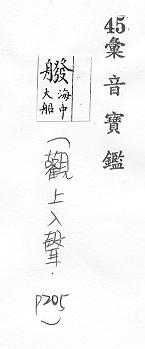 45彙音寶鑑
海中
大船
(觀上入聲. P205)